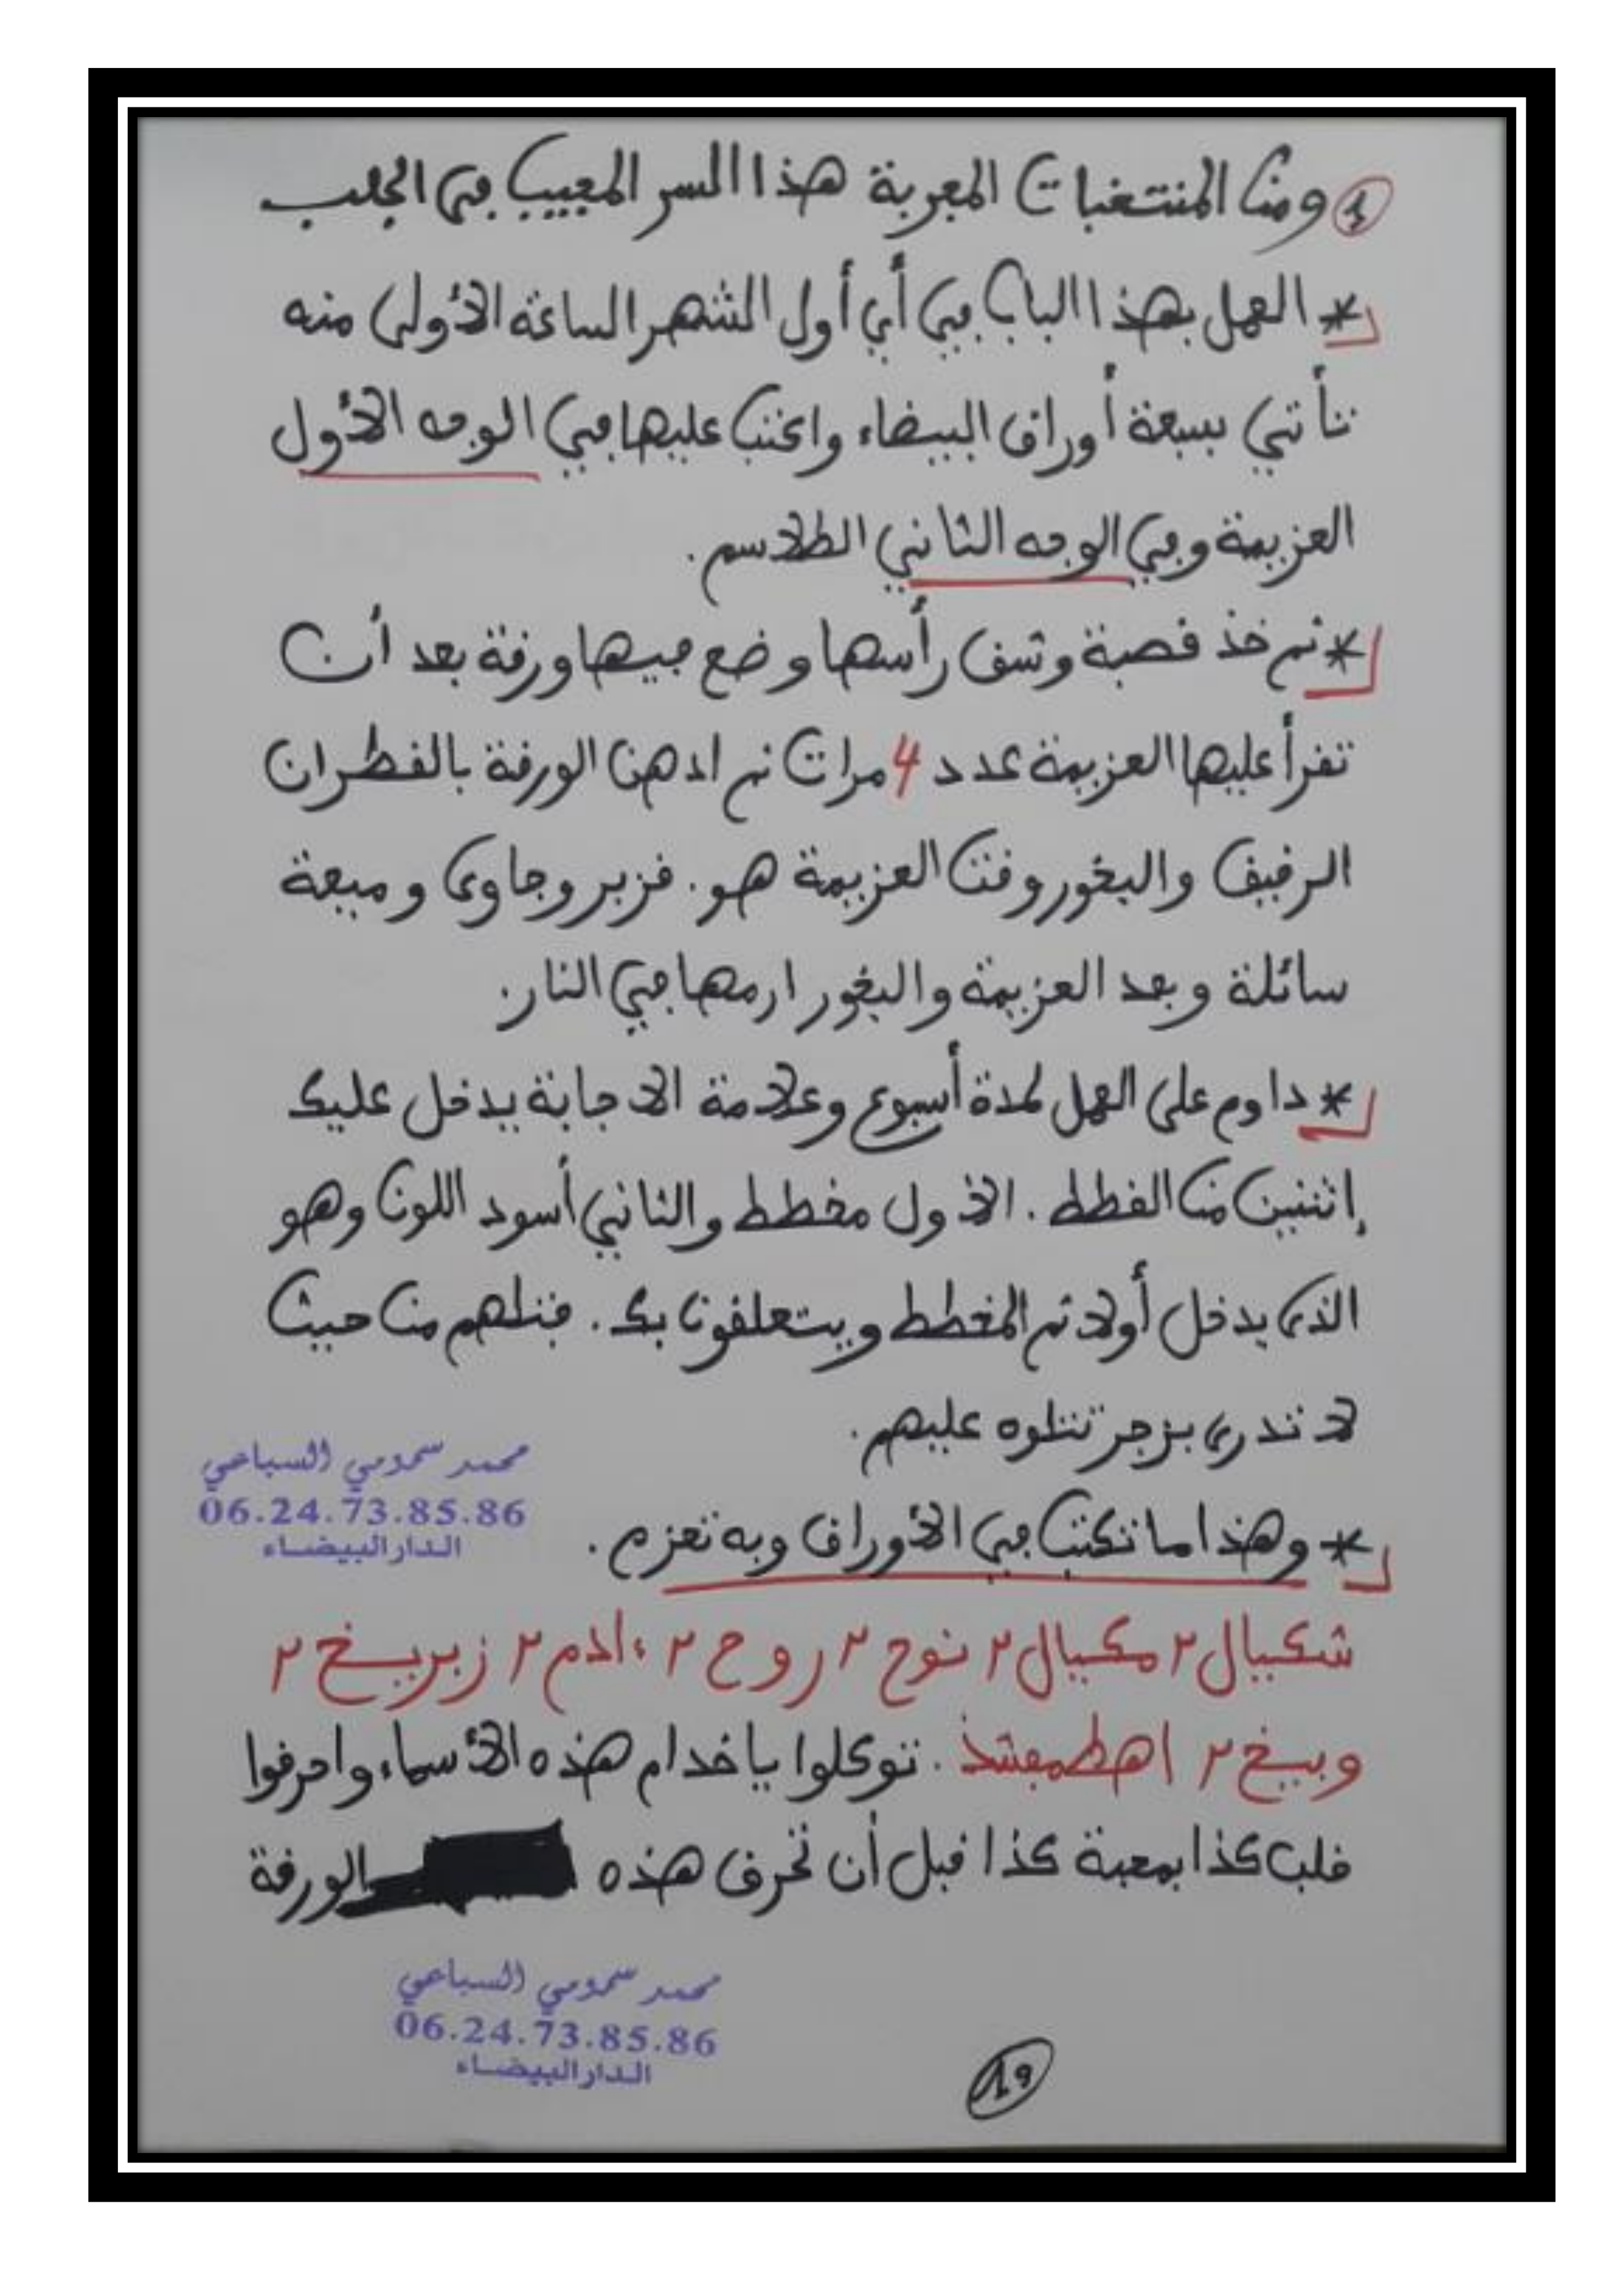 1 ومن المنتخبات المجربة هذا السر العجيب في الجلب
* العمل بهذا الباب في أي أول الشهر الساعة الأولى منه
تأتي بسبعة أوراق البيضاء واكتب عليها في الوجه الأول
العزيمة وفي الوجه الثاني الطلاسم.
* ثم خذ قصبة وشق رأسها وضع فيها ورقة بعد أن
تقرأ عليها العزيمة عدد 4 مرات ثم ادهن الورقة بالقطران
الرقيق والبخور وقت العزيمة هو. قزبر وجاوى وميعة
سائلة وبعد العزيمة والبخور ارمها في النار.
* داوم على العمل لمدة أسبوع وعلامة الاجابة يدخل عليك
إثنين من القطط. الأول مخطط والثاني أسود اللون وهو
الذى يدخل أولا ثم المخطط ويتعلقون بك. فتلهم من حيث
لا تدرى بزجر تتلوه عليهم.
محمد سمومي السباعي
06.24.73.85.86
الدار البيضاء
* وهذا ما تكتب في الأوراق وبه تعزم.
شكيال ٢ مكيال ٢ نوح ٢ روح ٢ ءادم ٢ زبريخ ٢
وبيخ ٢ اهطمفشذ. توكلوا يا خدام هذه الأسماء واحرقوا
قلب كذا بمحبة كذا قبل أن تحرق هذه الورقة
محمد سمومي السباعي
06.24.73.85.86
الدار البيضاء
19